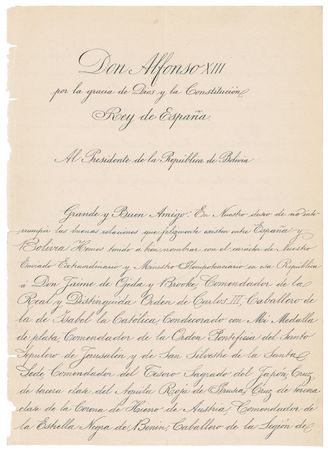 Don Alfonso XIII
por la gracia de Dios y la Constitución
Rey de España
Al Presidente de la República de Bolivia
Grande y Buen Amigo: En Nuestro deseo de no inte
rrumpir las buenas relaciones que felizmente existen entre España y
Bolivia Hemos tenido á bien nombrar con el carácter de Nuestro
Enviado Extraordinario y Ministro Plenipotenciario en esa República
á Don Jaime de Ojeda y Brooke, Comendador de la
Real y Distinguida Orden de Carlos III, Caballero de
la de Isabel la Católica, Condecorado con Mi Medalla
de plata, Comendador de la Orden Pontificia del Santo
Sepulcro de Jerusalén y de San Silvestre de la Santa
Sede, Comendador del Tesoro Sagrado del Japón, Cruz
de tercera clase del Aguila Roja de Prusia, Cruz de tercera
clase de la Corona de Hierro de Austria, Comendador de
la Estrella Negra de Benin, Caballero de la Legión de